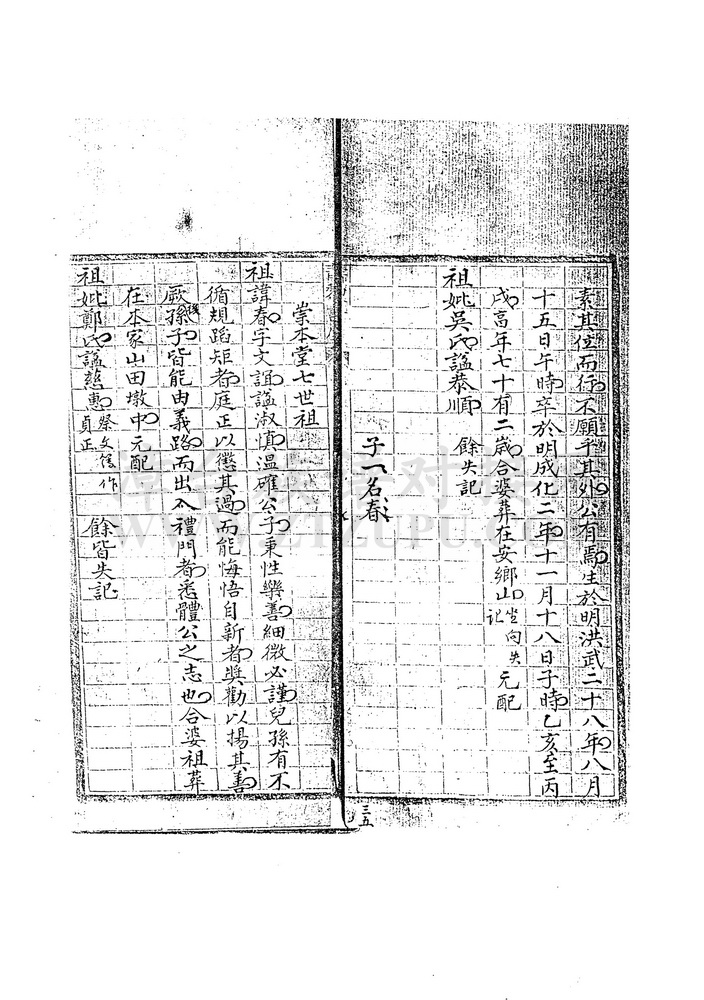 素其位而行不願乎其外公有焉生於明洪武二十八年八月
十五日午時卒於明成化二年十一月十八日子時乙亥至丙
戌高年七十有二歲合婆葬在安鄉山坐向失記元配
祖妣吳氏諡恭順 餘失記
子一名春
三五
崇本堂七世祖
祖諱春字文誼諡淑慎溫確公子秉性樂善細微必謹兒孫有不
循規蹈矩者庭正以懲其過而能悔悟自新者奬勸以揚其善
厥後孫子皆能由義路而出入禮門者悉體公之志也合婆祖葬
在本家山田墩中元配
祖妣鄭氏諡慈惠貞正祭文舊作 餘皆失記
WWW.ZTZUPU.COM